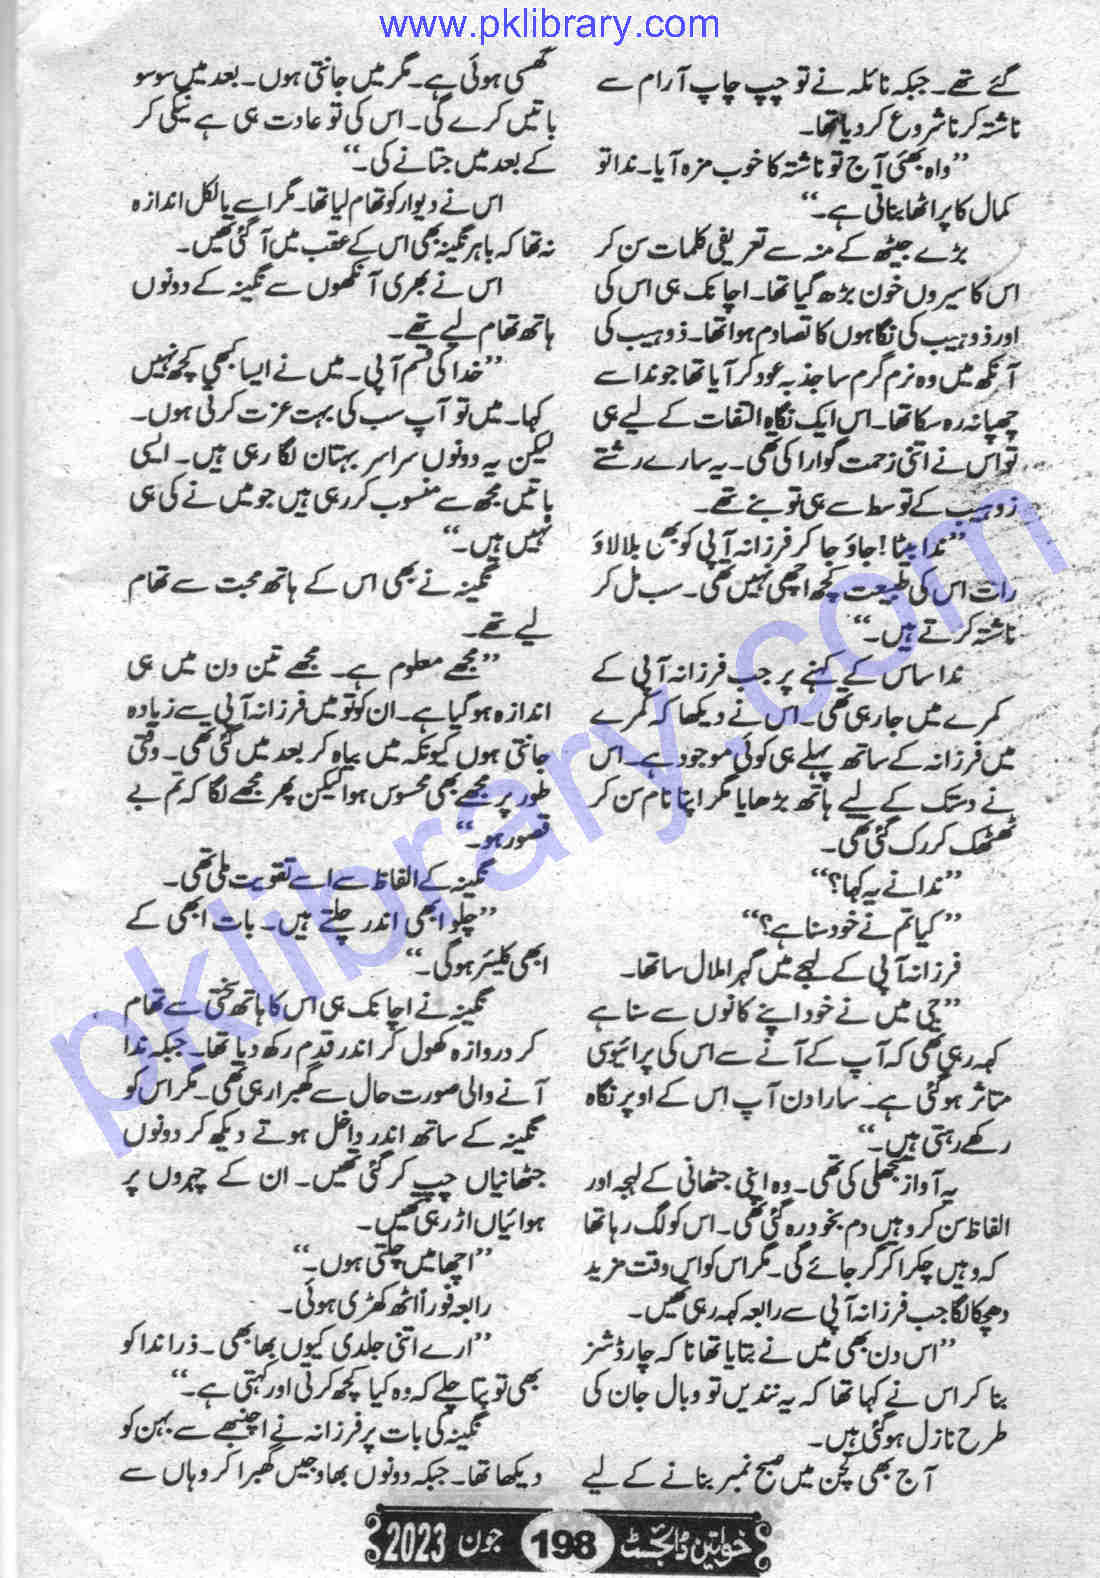 www.pklibrary.com
گئے تھے۔ جبکہ نائلہ نے تو چپ چاپ آرام سے
ناشتہ کرنا شروع کر دیا تھا۔
”واہ بھئی آج تو ناشتہ کا خوب مزہ آیا۔ ندا تو
کمال کا پراٹھا بناتی ہے۔“
بڑے جیٹھ کے منہ سے تعریفی کلمات سن کر
اس کا سیروں خون بڑھ گیا تھا۔ اچانک ہی اس کی
اور ذوہیب کی نگاہوں کا تصادم ہوا تھا۔ ذوہیب کی
آنکھ میں وہ نرم گرم سا جذبہ عود کر آیا تھا جو ندا سے
چھپا نہ رہ سکا تھا۔ اس ایک نگاہِ التفات کے لیے ہی
تو اس نے اتنی زحمت گوارا کی تھی۔ یہ سارے رشتے
زوہیب کے توسط سے ہی تو بنے تھے۔
”ندا بیٹا! جاؤ جا کر فرزانہ آپی کو بھی بلا لاؤ
رات اس کی طبیعت کچھ اچھی نہیں تھی۔ سب مل کر
ناشتہ کرتے ہیں۔“
ندا ساس کے کہنے پر جب فرزانہ آپی کے
کمرے میں جا رہی تھی۔ اس نے دیکھا کہ کمرے
میں فرزانہ کے ساتھ پہلے ہی کوئی موجود ہے۔ اس
نے دستک کے لیے ہاتھ بڑھایا مگر اپنا نام سن کر
ٹھٹھک کر رک گئی تھی۔
”ندا نے یہ کہا؟“
”کیا تم نے خود سنا ہے؟“
فرزانہ آپی کے لہجے میں گہرا ملال سا تھا۔
”جی میں نے خود اپنے کانوں سے سنا ہے
کہہ رہی تھی کہ آپ کے آنے سے اس کی پرائیوسی
متاثر ہو گئی ہے۔ سارا دن آپ اس کے اوپر نگاہ
رکھے رہتی ہیں۔“
یہ آواز منجھلی کی تھی۔ وہ اپنی جٹھانی کے لہجہ اور
الفاظ سن کر وہیں دم بخود رہ گئی تھی۔ اس کو لگ رہا تھا
کہ وہیں چکرا کر گر جائے گی۔ مگر اس کو اس وقت مزید
دھچکا لگا جب فرزانہ آپی سے رابعہ کہہ رہی تھیں۔
”اس دن بھی میں نے بتایا تھا نا کہ چار ڈشز
بنا کر اس نے کہا تھا کہ یہ نندیں تو وبال جان کی
طرح نازل ہو گئی ہیں۔
آج بھی کچن میں صبح نمبر بنانے کے لیے
گھسی ہوئی ہے۔ مگر میں جانتی ہوں۔ بعد میں سو سو
باتیں کرے گی۔ اس کی تو عادت ہی ہے نیکی کر
کے بعد میں جتانے کی۔“
اس نے دیوار کو تھام لیا تھا۔ مگر اسے بالکل اندازہ
نہ تھا کہ باہر نگینہ بھی اس کے عقب میں آ گئی تھیں۔
اس نے بھری آنکھوں سے نگینہ کے دونوں
ہاتھ تھام لیے تھے۔
”خدا کی قسم آپی۔ میں نے ایسا کبھی کچھ نہیں
کہا۔ میں تو آپ سب کی بہت عزت کرتی ہوں۔
لیکن یہ دونوں سراسر بہتان لگا رہی ہیں۔ ایسی
باتیں مجھ سے منسوب کر رہی ہیں جو میں نے کی ہی
نہیں ہیں۔“
نگینہ نے بھی اس کے ہاتھ محبت سے تھام
لیے تھے۔
”مجھے معلوم ہے۔ مجھے تین دن میں ہی
اندازہ ہو گیا ہے۔ ان کو تو میں فرزانہ آپی سے زیادہ
جانتی ہوں کیونکہ میں بیاہ کر بعد میں گئی تھی۔ وقتی
طور پر مجھے بھی محسوس ہوا لیکن پھر مجھے لگا کہ تم بے
قصور ہو۔“
نگینہ کے الفاظ سے اسے تقویت ملی تھی۔
”چلو ابھی اندر چلتے ہیں۔ بات ابھی کے
ابھی کلیئر ہو گی۔“
نگینہ نے اچانک ہی اس کا ہاتھ سختی سے تھام
کر دروازہ کھول کر اندر قدم رکھ دیا تھا۔ جبکہ ندا
آنے والی صورت حال سے گھبرا رہی تھی۔ مگر اس کو
نگینہ کے ساتھ اندر داخل ہوتے دیکھ کر دونوں
جٹھانیاں چپ کر گئی تھیں۔ ان کے چہروں پر
ہوائیاں اڑ رہی تھیں۔
”اچھا میں چلتی ہوں۔“
رابعہ فوراً اٹھ کھڑی ہوئی۔
”ارے اتنی جلدی کیوں بھابھی۔ ذرا ندا کو
بھی تو پتا چلے کہ وہ کیا کچھ کرتی اور کہتی ہے۔“
نگینہ کی بات پر فرزانہ نے اچنبھے سے بہن کو
دیکھا تھا۔ جبکہ دونوں بھاوجیں گھبرا کر وہاں سے
خواتین ڈائجسٹ 198 جون 2023
pklibrary.com